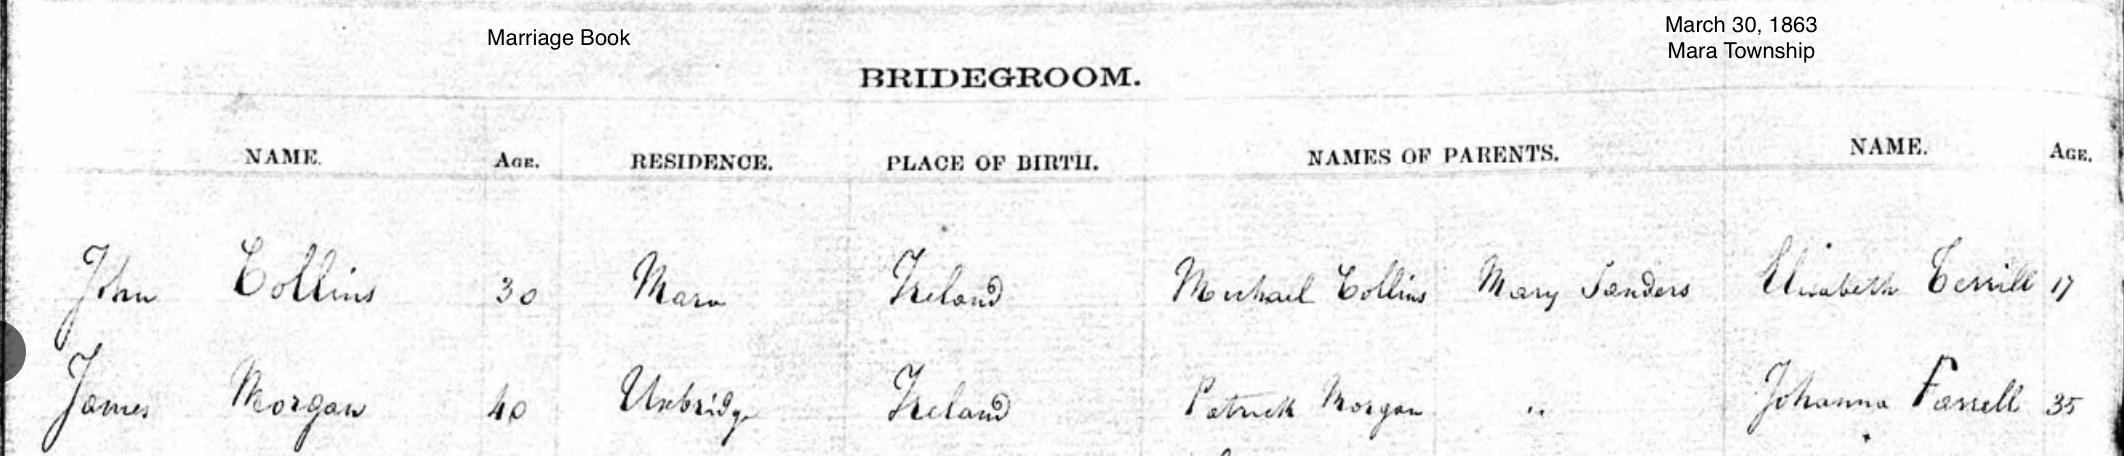 Marriage Book
March 30, 1863
Mara Township
BRIDEGROOM.
NAME. AGE. RESIDENCE. PLACE OF BIRTH. NAMES OF PARENTS. NAME. AGE.
John Collins 30 Mara Ireland Michael Collins Mary Sanders Elisabeth Terrill 17
James Morgan 40 Uxbridge Ireland Patrick Morgan " Johanna Farrell 35